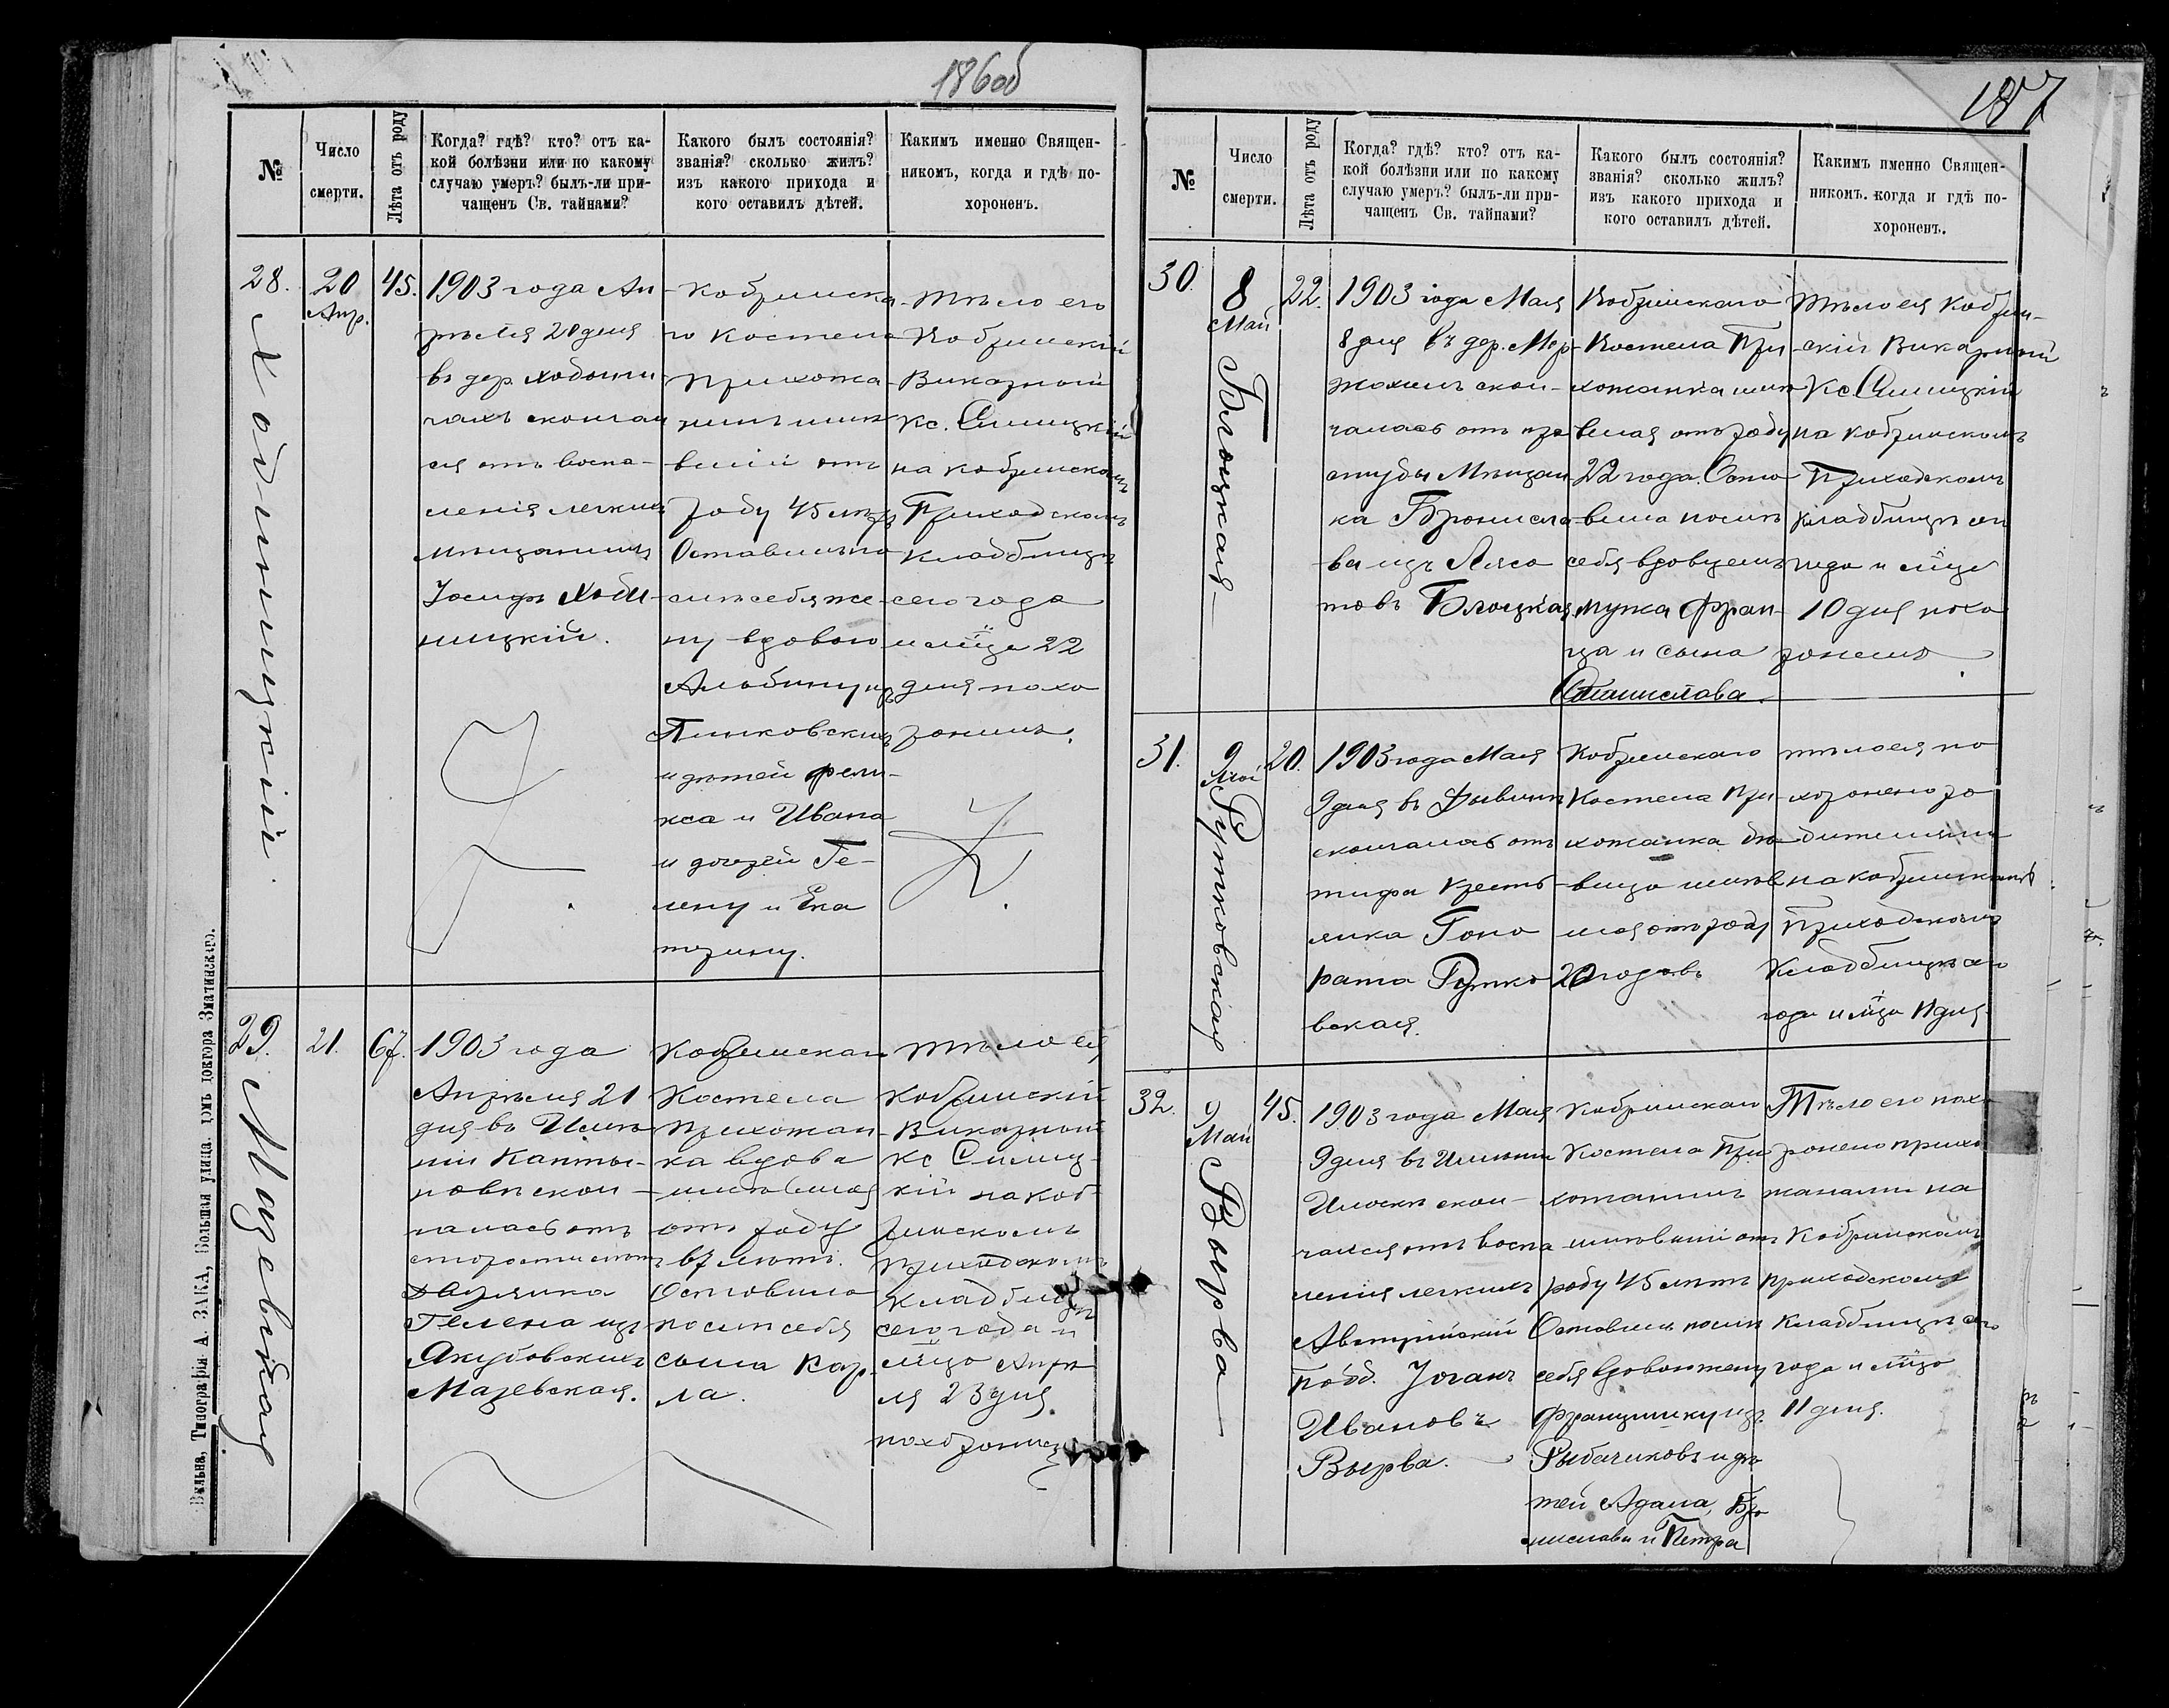 186об
№
Число
смерти.
Лѣта отъ роду
Когда? гдѣ? кто? отъ ка-
кой болѣзни или по какому
случаю умеръ? былъ-ли при-
чащенъ Св. тайнами?
Какого былъ состоянія?
званія? сколько жилъ?
изъ какого прихода и
кого оставилъ дѣтей.
Какимъ именно Священ-
никомъ, когда и гдѣ по-
хороненъ.
28.
Ходыницкій.
20
Апр.
45.
1903 года Ап-
рѣля 20 дня
въ дер. Ходыни
чахъ скончал
ся отъ воспа-
ленія легкихъ
мѣщанинъ
Іосифъ Ходы-
ницкій.
Кобринска-
го Костела
Прихожа-
нинъ жив
вшій отъ
роду 45 лѣтъ
Оставилъ по
слѣ себя же-
ну вдовою
Альбину изъ
Пинковскихъ
и дѣтей Фели-
кса и Ивана
и дочерей Ге-
лену и Ека
терину.
Тѣло его
Кобринскій
Викарный
Кс. Силицкій
на Кобринскомъ
Приходскомъ
Кладбищѣ
сего года
и м̃ца 22
дня похо
ронилъ.
29.
Мазевская
21.
67.
1903 года
Апрѣля 21
дня въ Имѣ
ніи Капты-
повѣ скон-
чалась отъ
старости лѣтъ
Дворянка
Гелена изъ
Якубовскихъ
Мазевская.
Кобринскаго
Костела
прихожан
ка вдова
жившая
отъ роду
67 лѣтъ.
Оставила
послѣ себя
сына Кар
ла.
тѣло ея
Кобринскій
Викарный
Кс Силиц-
кій на Коб-
ринскомъ
приходскомъ
Кладбищѣ
сего года и
м̃ца Апрѣ
ля 23 дня
похоронилъ
Вильна, Типографія А. ЗАКА, Большая улица домъ доктора Змачинскаго.
187
№
Число
смерти.
Лѣта отъ роду
Когда? гдѣ? кто? отъ ка-
кой болѣзни или по какому
случаю умеръ? былъ-ли при-
чащенъ Св. тайнами?
Какого былъ состоянія?
званія? сколько жилъ?
изъ какого прихода и
кого оставилъ дѣтей.
Какимъ именно Священ-
никомъ. когда и гдѣ по-
хороненъ.
30.
Блоцкая
8
Май
22.
1903 года Мая
8 дня въ дер.
скон-
чалась отъ про
студы Мѣщан
ка Бронисла
ва изъ Лясо
товъ Блоцкая
Кобринскаго
Костела При
хожанка жи
вшая отъ роду
22 года. Оста
вила послѣ
себя вдовцемъ
мужа Фран-
ца и сына
Станислава.
Тѣло ея Кобрин-
скій Викарный
Кс. Силицкій
на Кобринскомъ
Приходскомъ
Кладбищѣ сего
года и м̃ца
10 дня похо
ронено
31.
Рутковская
9
Май
20.
1903 года Мая
9 дня въ Дывинѣ
скончалась отъ
тифа Кресть-
янка Гоно
рата Рутко
вская.
Кобринскаго
Костела При
хожанка дѣ-
вица живв
шая отъ роду
20 годовъ
тѣло ея по
хоронено ро
дителями
на Кобринскомъ
Приходскомъ
Кладбищѣ сего
года и м̃ца 11 дня
32.
Вырва
9
Май
45.
1903 года Мая
9 дня въ Имѣніи
Илоскѣ скон-
чался отъ воспа
ленія легкихъ
Австрійскій
подд. Іоганъ
Ивановъ
Вырва.
Кобринскаго
Костела При
хожанинъ
жившій отъ
роду 45 лѣтъ
Оставилъ послѣ
себя вдовою жену
Францишку изъ
Рыбачиковъ и дѣ
тей Адама, Бро
нислава и Петра
Тѣло его похо
ронено прихо
жанами на
Кобринскомъ
приходскомъ
Кладбищѣ сего
года и м̃ца
11 дня.